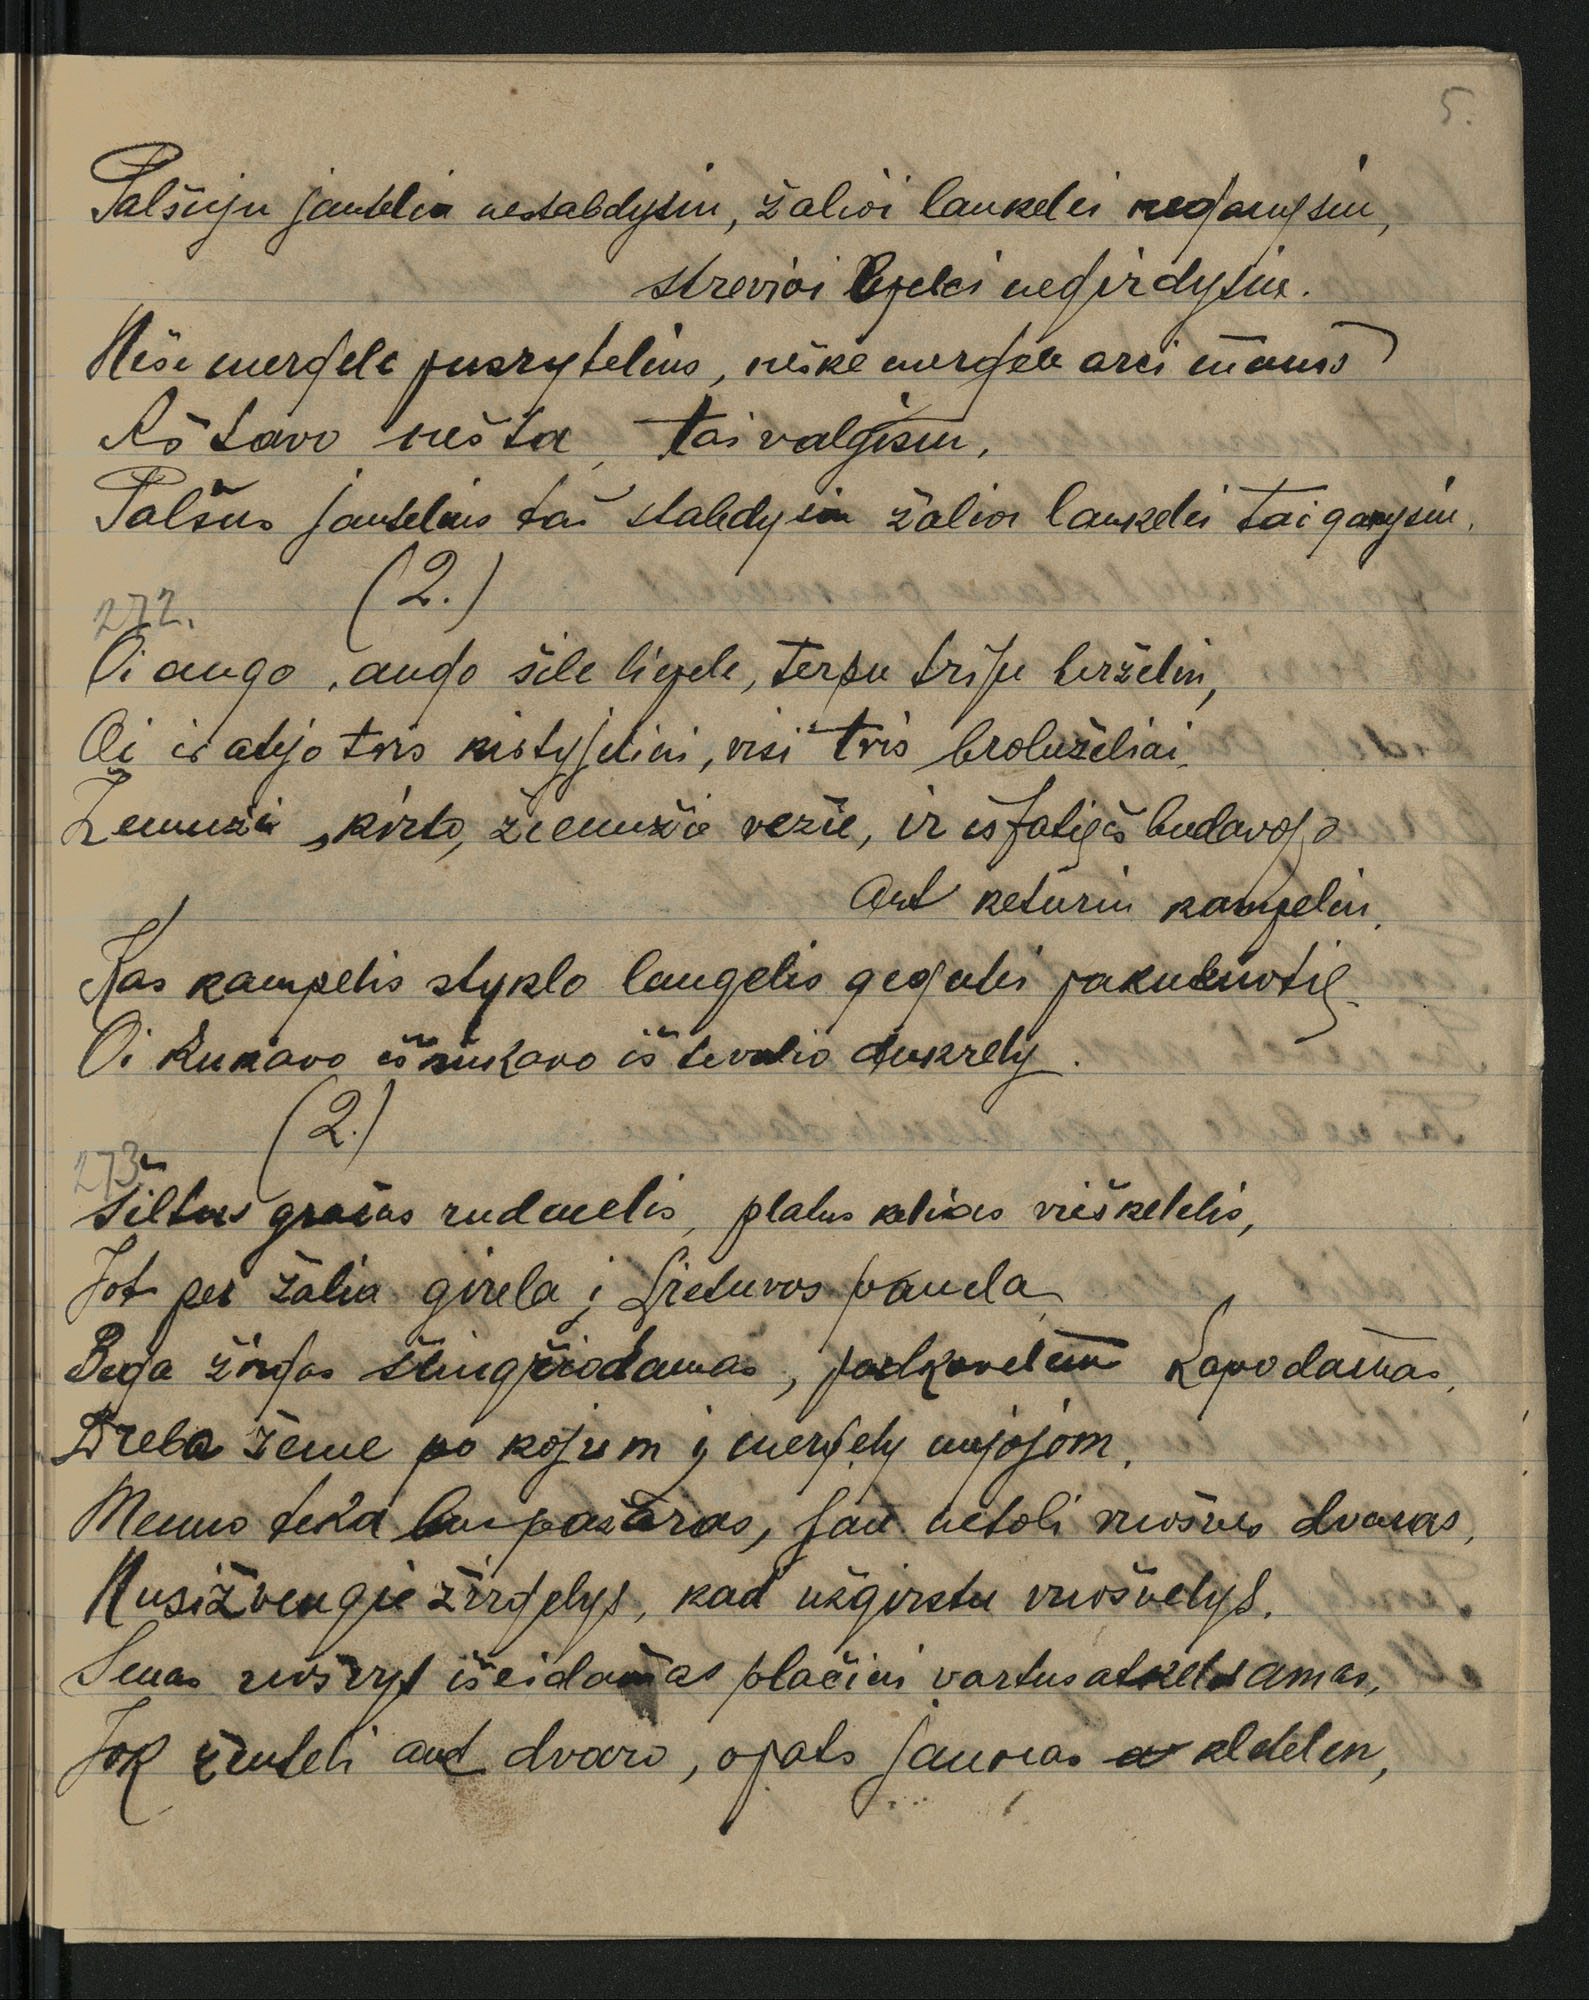 5.
Palšuju jautelia nestabdysiu, žalioi laukelei neganysiu,
srevioi upelei negirdysiu.
Neše mergele pusrytelius, neške mergele arei mams
Aš tavo nešta, tai valgisiu,
Palšus jautelius tai stabdysiu žalioi laukelei tai ganysiu.
(2.)
272.
Oi augo, augo šile liepele, terpu triju berželiu,
Oi ir atejo tris kistyjeliai, visi tris broluželiai,
Žemužia kirto, žiemužia vežie, ir isjatiejs budavojo
ant keturiu kampeliu.
Kas kampelis styklo langelis gegutei pakukuotie
Oi kukavo iškukavo iš tevelio dukrely.
(2.)
273.
Šiltas gražus rudenelis, platus kelias vieškelelis,
Jot per žalia girela į Lietuvos panela
Bega žirgas štingžiodamas, padkavelem kapodamas,
Dreba žeme po kojum į mergely nujojom.
Menuo teka pažaras, jau netoli uošvės dvaras,
Nusižvengie žirgelys, kad užgirstu uošvelys.
Senas uošvys išeidamas plačiai vartus atkeldamas,
Jok žentelі ant dvaro, opats jaunas a kletelen,